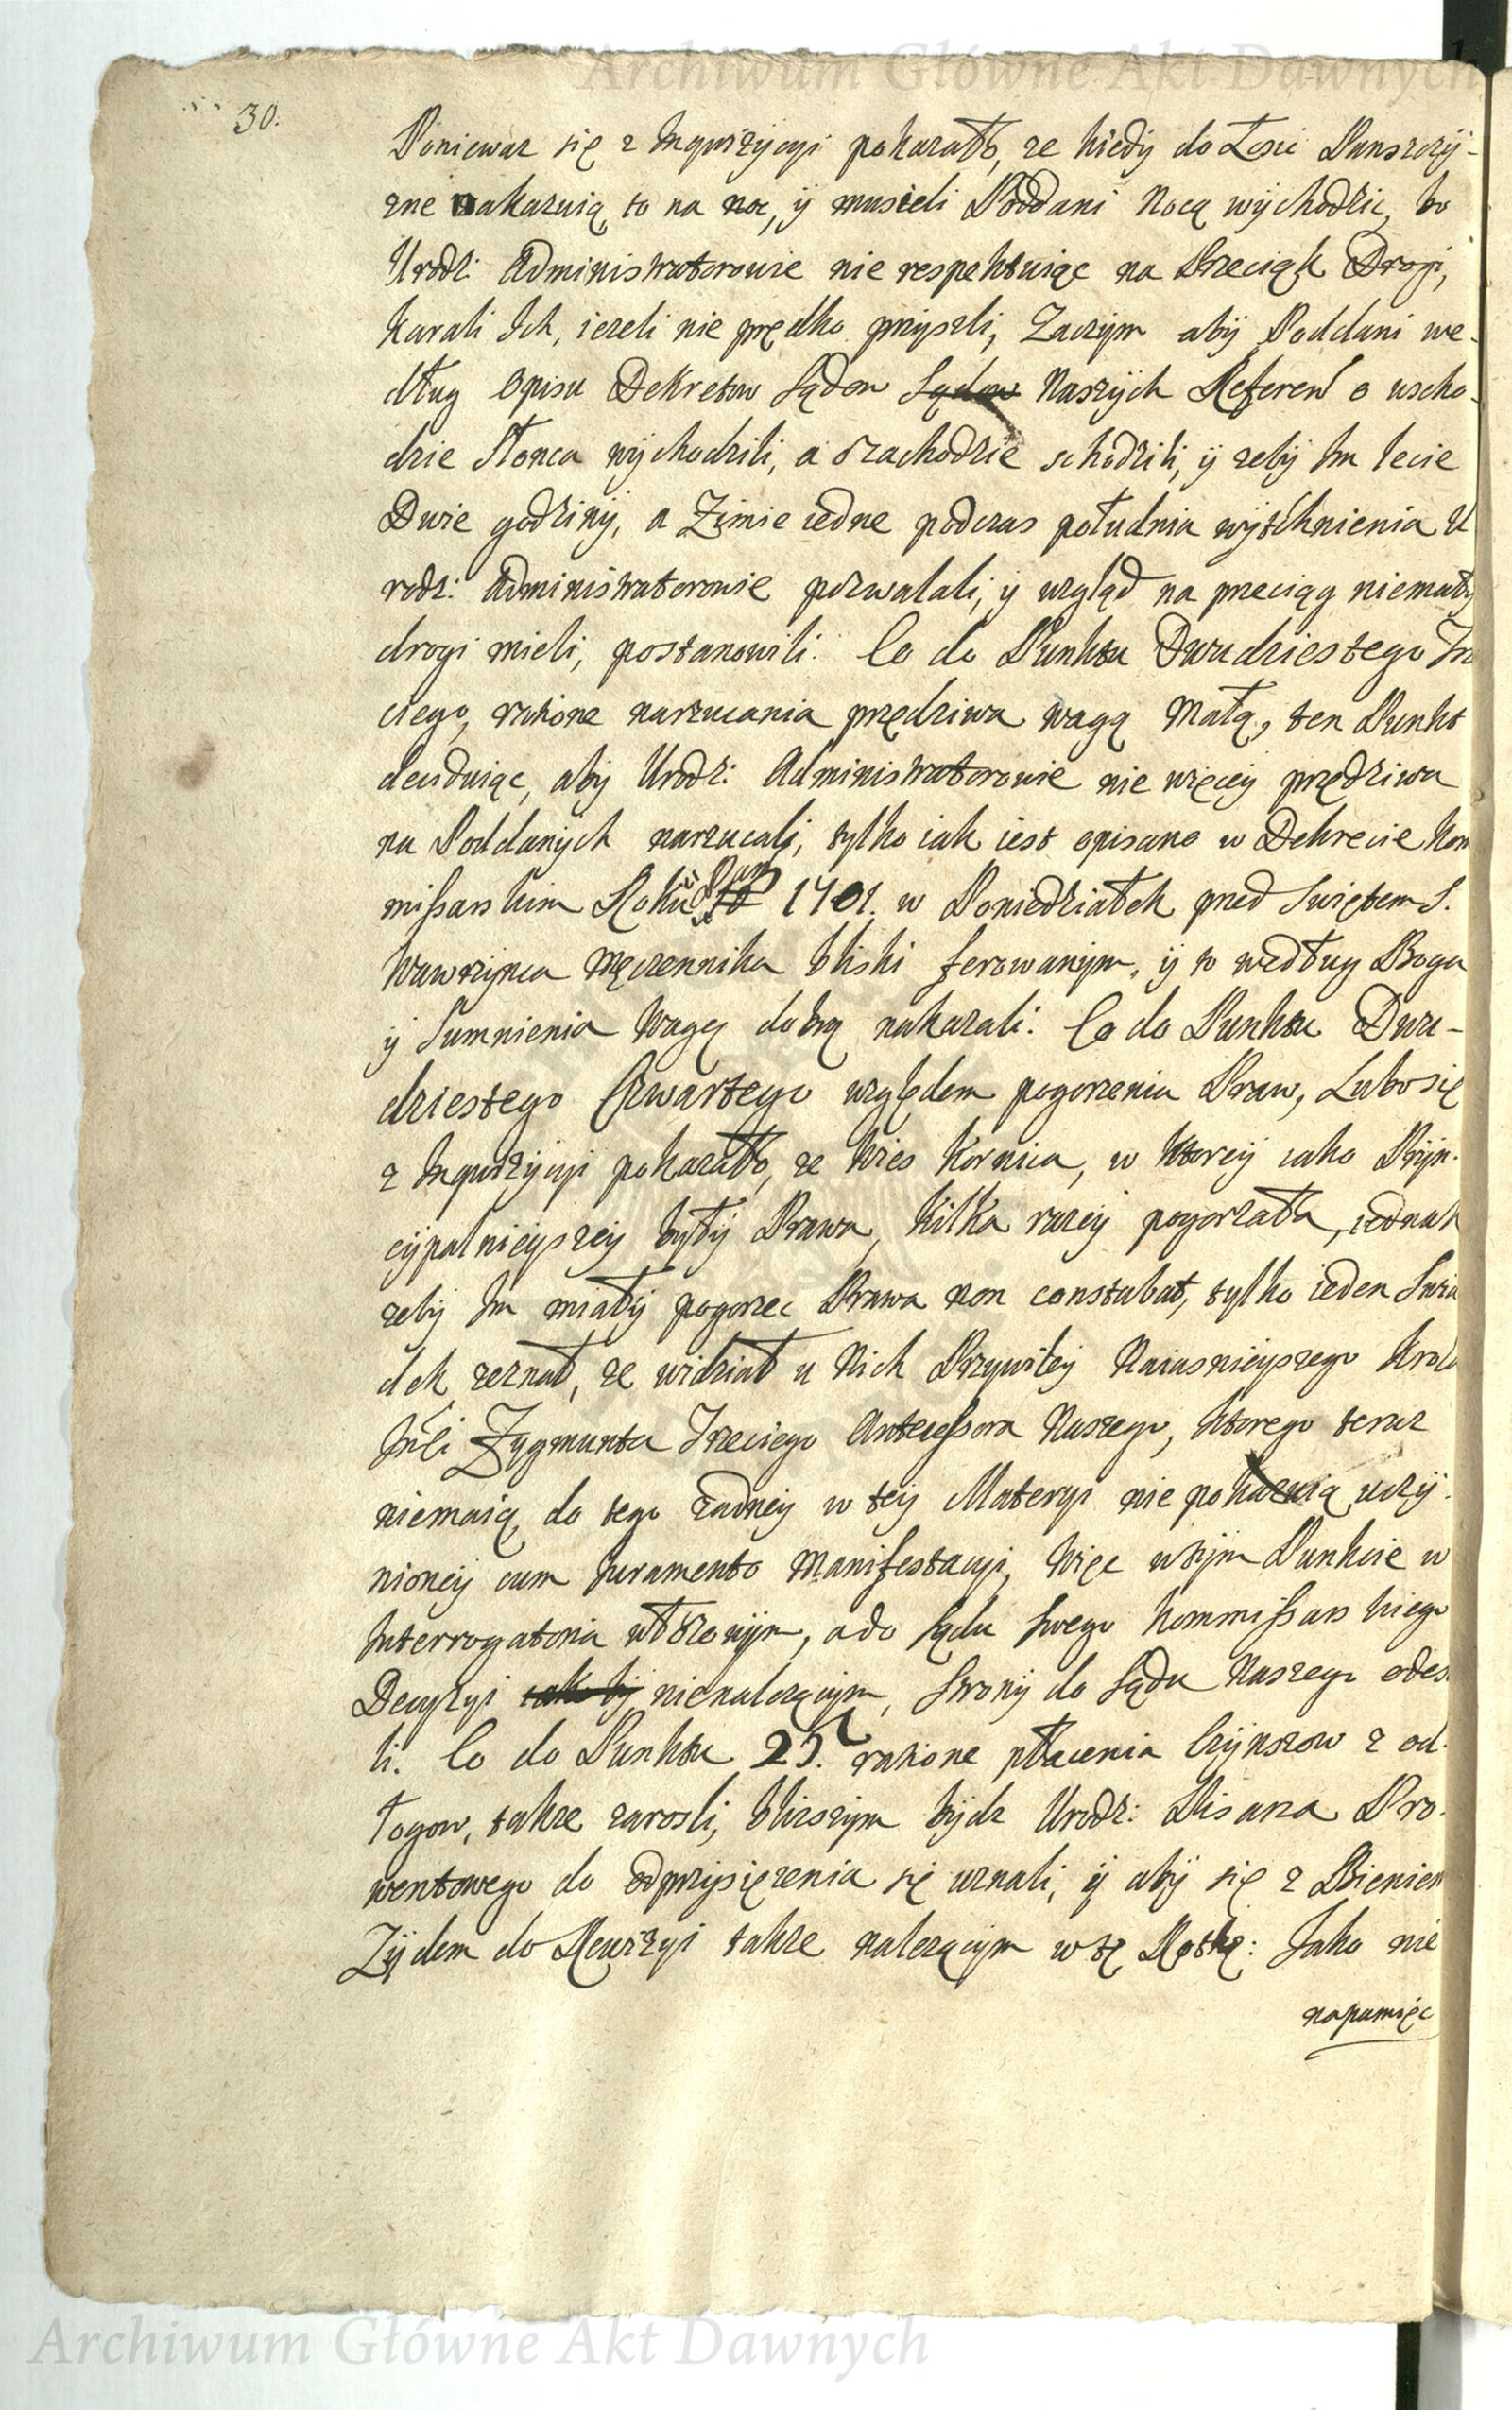 Archiwum Główne Akt Dawnych
30.
Poniewaz się z Inqwizycyi pokazało, ze kiedy do Łosic Panszczy-
zne nakazuią to na noc, y musieli Poddani Nocą wychodzic, bo
Urodz: Administratorowie nie respektuiąc na Przeciąk Drogi,
karali Ich, iezeli nie prędko przyszli, Zaczym aby Poddani we-
dług Opisu Dekretow Sądow Sądow Naszych Referen̄ o wscho-
dzie Słonca wychodzili, a o zachodzie schodzili, y zeby Im lecie
Dwie godziny, a Zimie iedne podczas południa wytchnienia U
rodz: Administratorowie pozwalali, y wzgląd na przeciąg niemały
drogi mieli, postanowili. Co do Punktu Dwudziestego Trze
ciego, ratione narzucania przędziwa wagą Małą, ten Punkt
decuduiąc, aby Urodz: Administratorowie nie więcey przędziwa
na Poddanych narzucali, tylko iak iest opisano w Dekrecie Kom
missarskim Roku 1701. w Poniedziałek przed Swiętem S.
Wawrzynca Męczennika bliski ferowanym, y to według Boga
y Sumnienia Wagę dobrą nakazali. Co do Punktu Dwu-
dziestego Czwartego względem pogorzenia Praw, Lubo się
z Inqwizycyi pokazało, ze Wies Kornica, w Ktorey iako Pryn-
cypalnieyszey były Prawa, kilka razy pogorzała, iednak
zeby Im miały pogorzec Prawa non constabat, tylko ieden Swia
dek zeznał, ze widział u Nich Przywiley Naiasnieyszego Krola
Jm̄ci Zygmunta Trzeciego Antecessora Naszego, ktorego teraz
niemaią, do tego zadney w tey Materyi nie pokazuią uczy-
nioney cum Juramento Manifestacyi, Więc w tym Punkcie w
Interrogatoria włozonym, a do Sądu Swego Kommissarskiego
Decyzyi iako by nienalezącym, Strony do Sądu Naszego odesła
li. Co do Punktu 25. ratione płacenia Czynszow z od-
łogow, takze zarosli, blizszym bydz Urodz: Pisarza Pro-
wentowego do odprzysięzenia się uznali, y aby się z Bieniem
Zydem do Rewizyi takze nalezącym w tę Rotę: Jako nie
na pamięc
Archiwum Główne Akt Dawnych